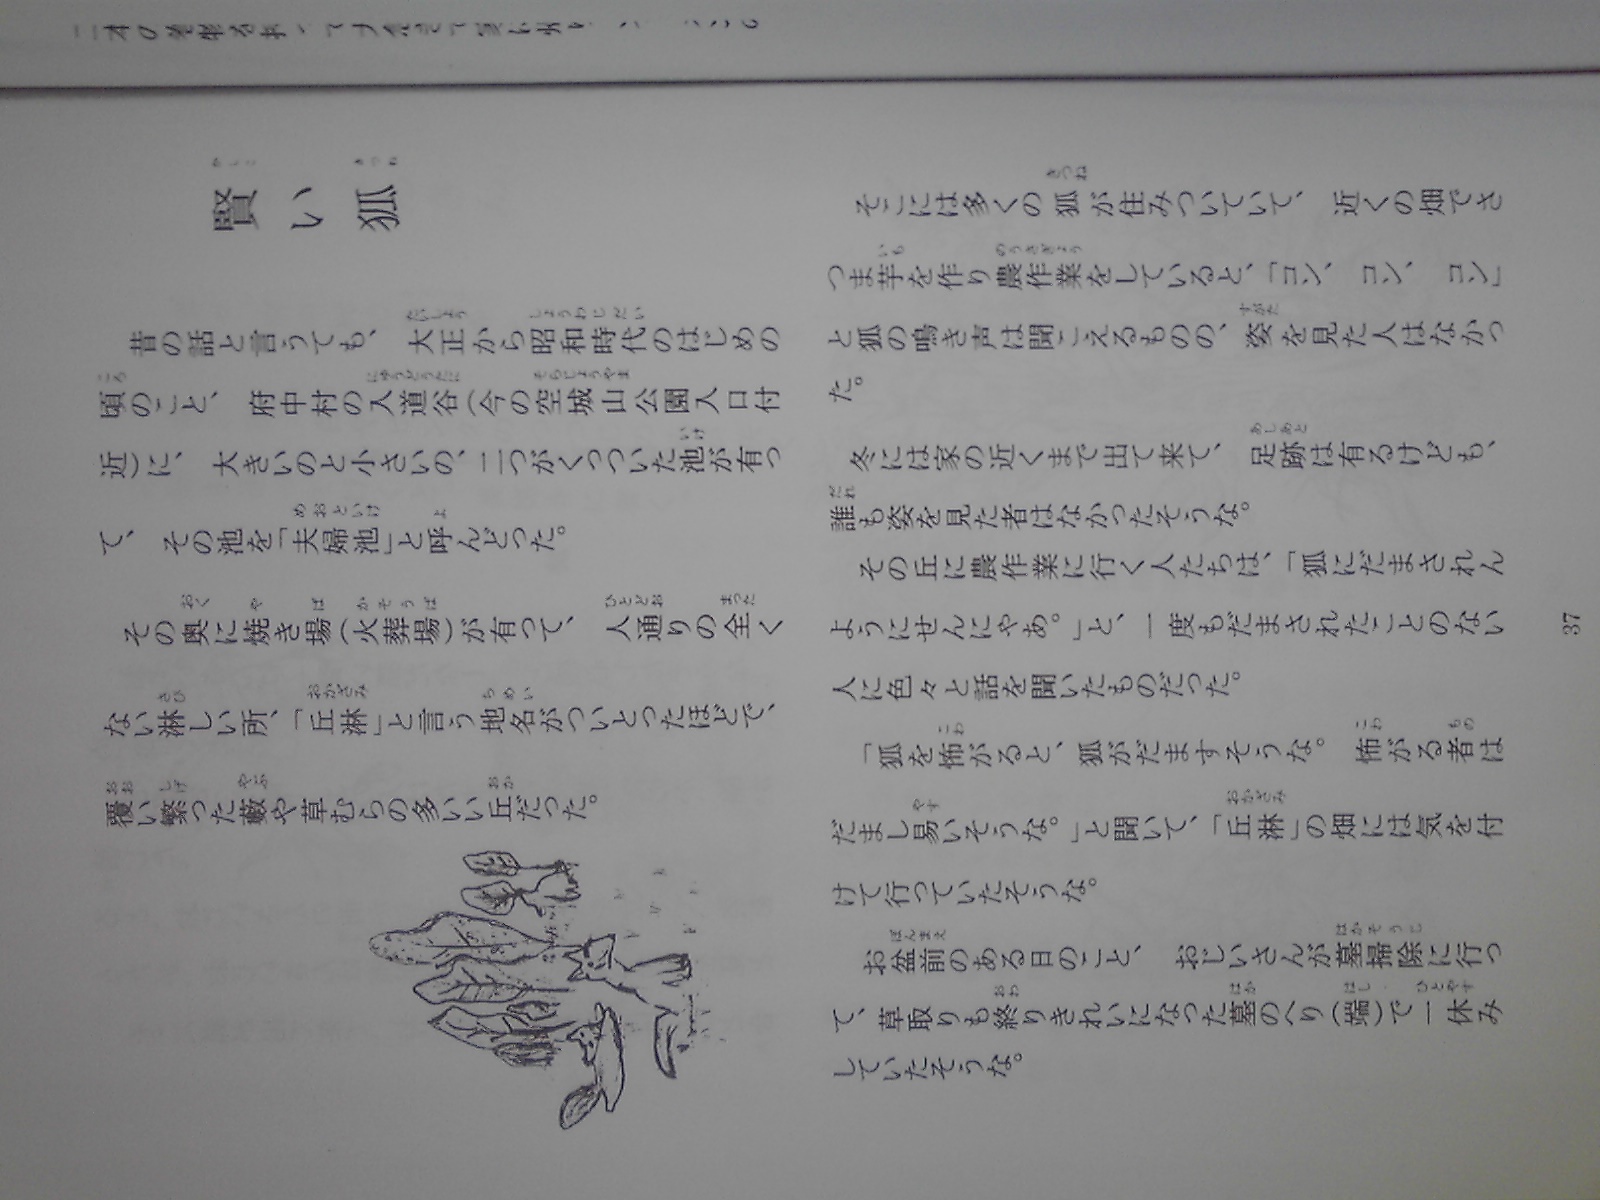 賢い狐
昔の話と言うても、大正から昭和時代のはじめの
頃のこと、府中村の入道谷(今の空城山公園入口付
近)に、大きいのと小さいの、二つがくっついた池が有っ
て、その池を「夫婦池」と呼んどった。
その奥に焼き場(火葬場)が有って、人通りの全く
ない淋しい所、「丘淋」と言う地名がついとったほどで、
覆い繁った藪や草むらの多いい丘だった。
そこには多くの狐が住みついていて、近くの畑でさ
つま芋を作り農作業をしていると、「コン、コン、コン」
と狐の鳴き声は聞こえるものの、姿を見た人はなかっ
た。
冬には家の近くまで出て来て、足跡は有るけども、
誰も姿を見た者はなかったそうな。
その丘に農作業に行く人たちは、「狐にだまされん
ようにせんにゃあ。」と、一度もだまされたことのない
人に色々と話を聞いたものだった。
「狐を怖がると、狐がだますそうな。怖がる者は
だまし易いそうな。」と聞いて、「丘淋」の畑には気を付
けて行っていたそうな。
お盆前のある日のこと、おじいさんが墓掃除に行っ
て、草取りも終りきれいになった墓のへり(端)で一休み
していたそうな。
37